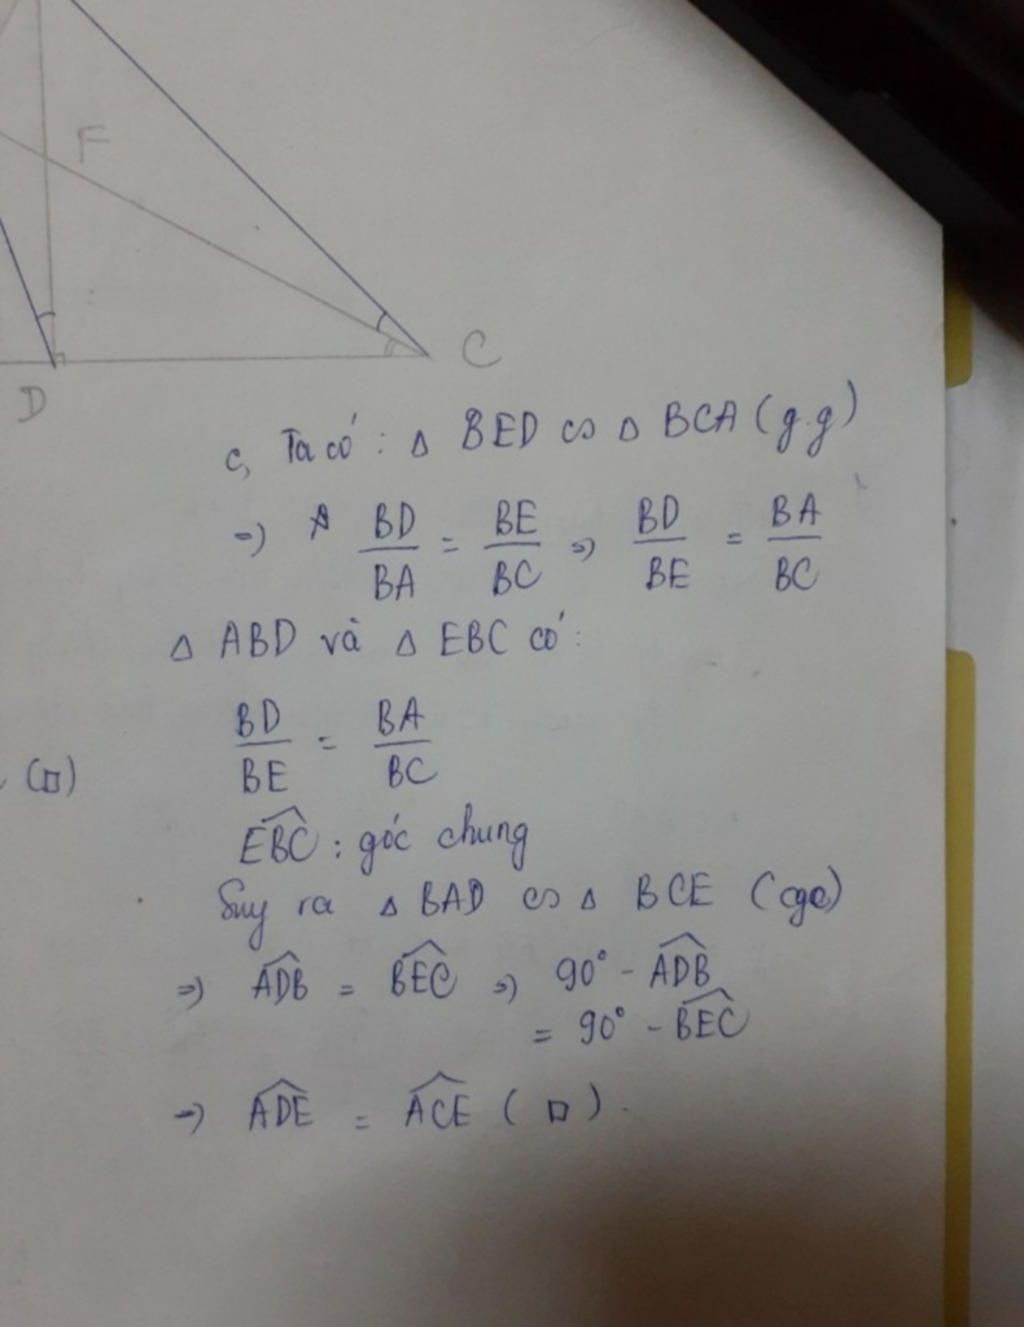 F
C
D
c, Ta có : Δ BED ∽ Δ BCA (g.g)
=> BD/BA = BE/BC => BD/BE = BA/BC
Δ ABD và Δ EBC có:
BD/BE = BA/BC
(□)
EBC^ : góc chung
Suy ra Δ BAD ∽ Δ BCE (cgc)
=> ADB^ = BEC^ => 90° - ADB^
= 90° - BEC^
=> ADE^ = ACE^ ( □ ) .